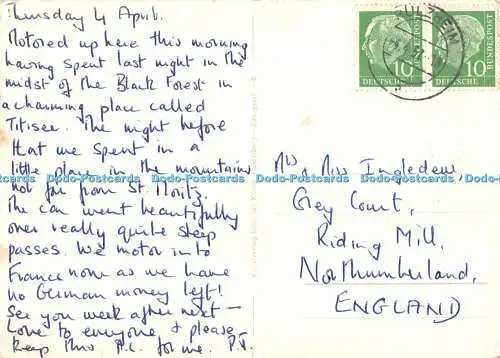 Thursday 4 April.
Motored up here this morning
having spent last night in the
midst of the Black Forest in
a charming place called
Titisee. The night before
that we spent in a
little place in the mountains
not far from St. Moritz.
The car went beautifully
over really quite steep
passes. We motor into
France now as we have
no German money left!
See you week after next —
Love to everyone & please
keep this p.c. for me. P.J.
10 10
DEUTSCHE BUNDESPOST
DEUTSCHE BUNDESPOST
Mrs & Miss Ingledew
Grey Court,
Riding Mill,
Northumberland.
ENGLAND
Dodo-Postcards Dodo-Postcards Dodo-Postcards Dodo-Postcards